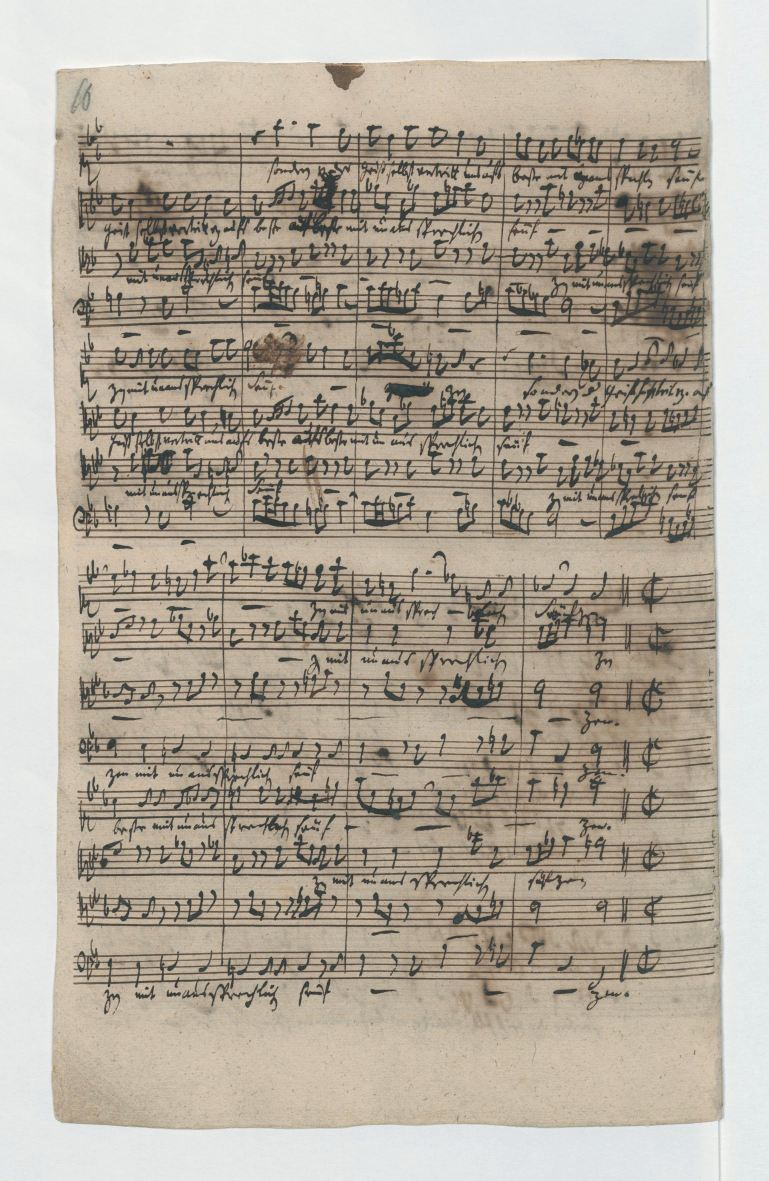 sondern der Geist selbst vertritt uns aufs beste mit unaus sprechl. seuf
Geist selbst vertritt uns aufs beste aufs beste mit unaus sprechlich seuf
mit unaussprechlich seuf zen mit unaussprechlich seuf
zen mit unaussprechlich seuf zen sondern d Geist selbst vertrit uns auf
Geist selbst vertritt uns aufs beste aufs beste mit un aus sprechlich seuf
mit unaussprechlich seuf zen mit unaussprechlich seuf
zen mit unaus sprech lich seufzen
zen mit unaus sprechlich zen
zen.
zen mit un aussprechlich seuf zen.
beste mit unaus sprechlich seuf zen.
zen mit unaus sprechlich seufzen
zen mit unaussprechlich seuf zen.